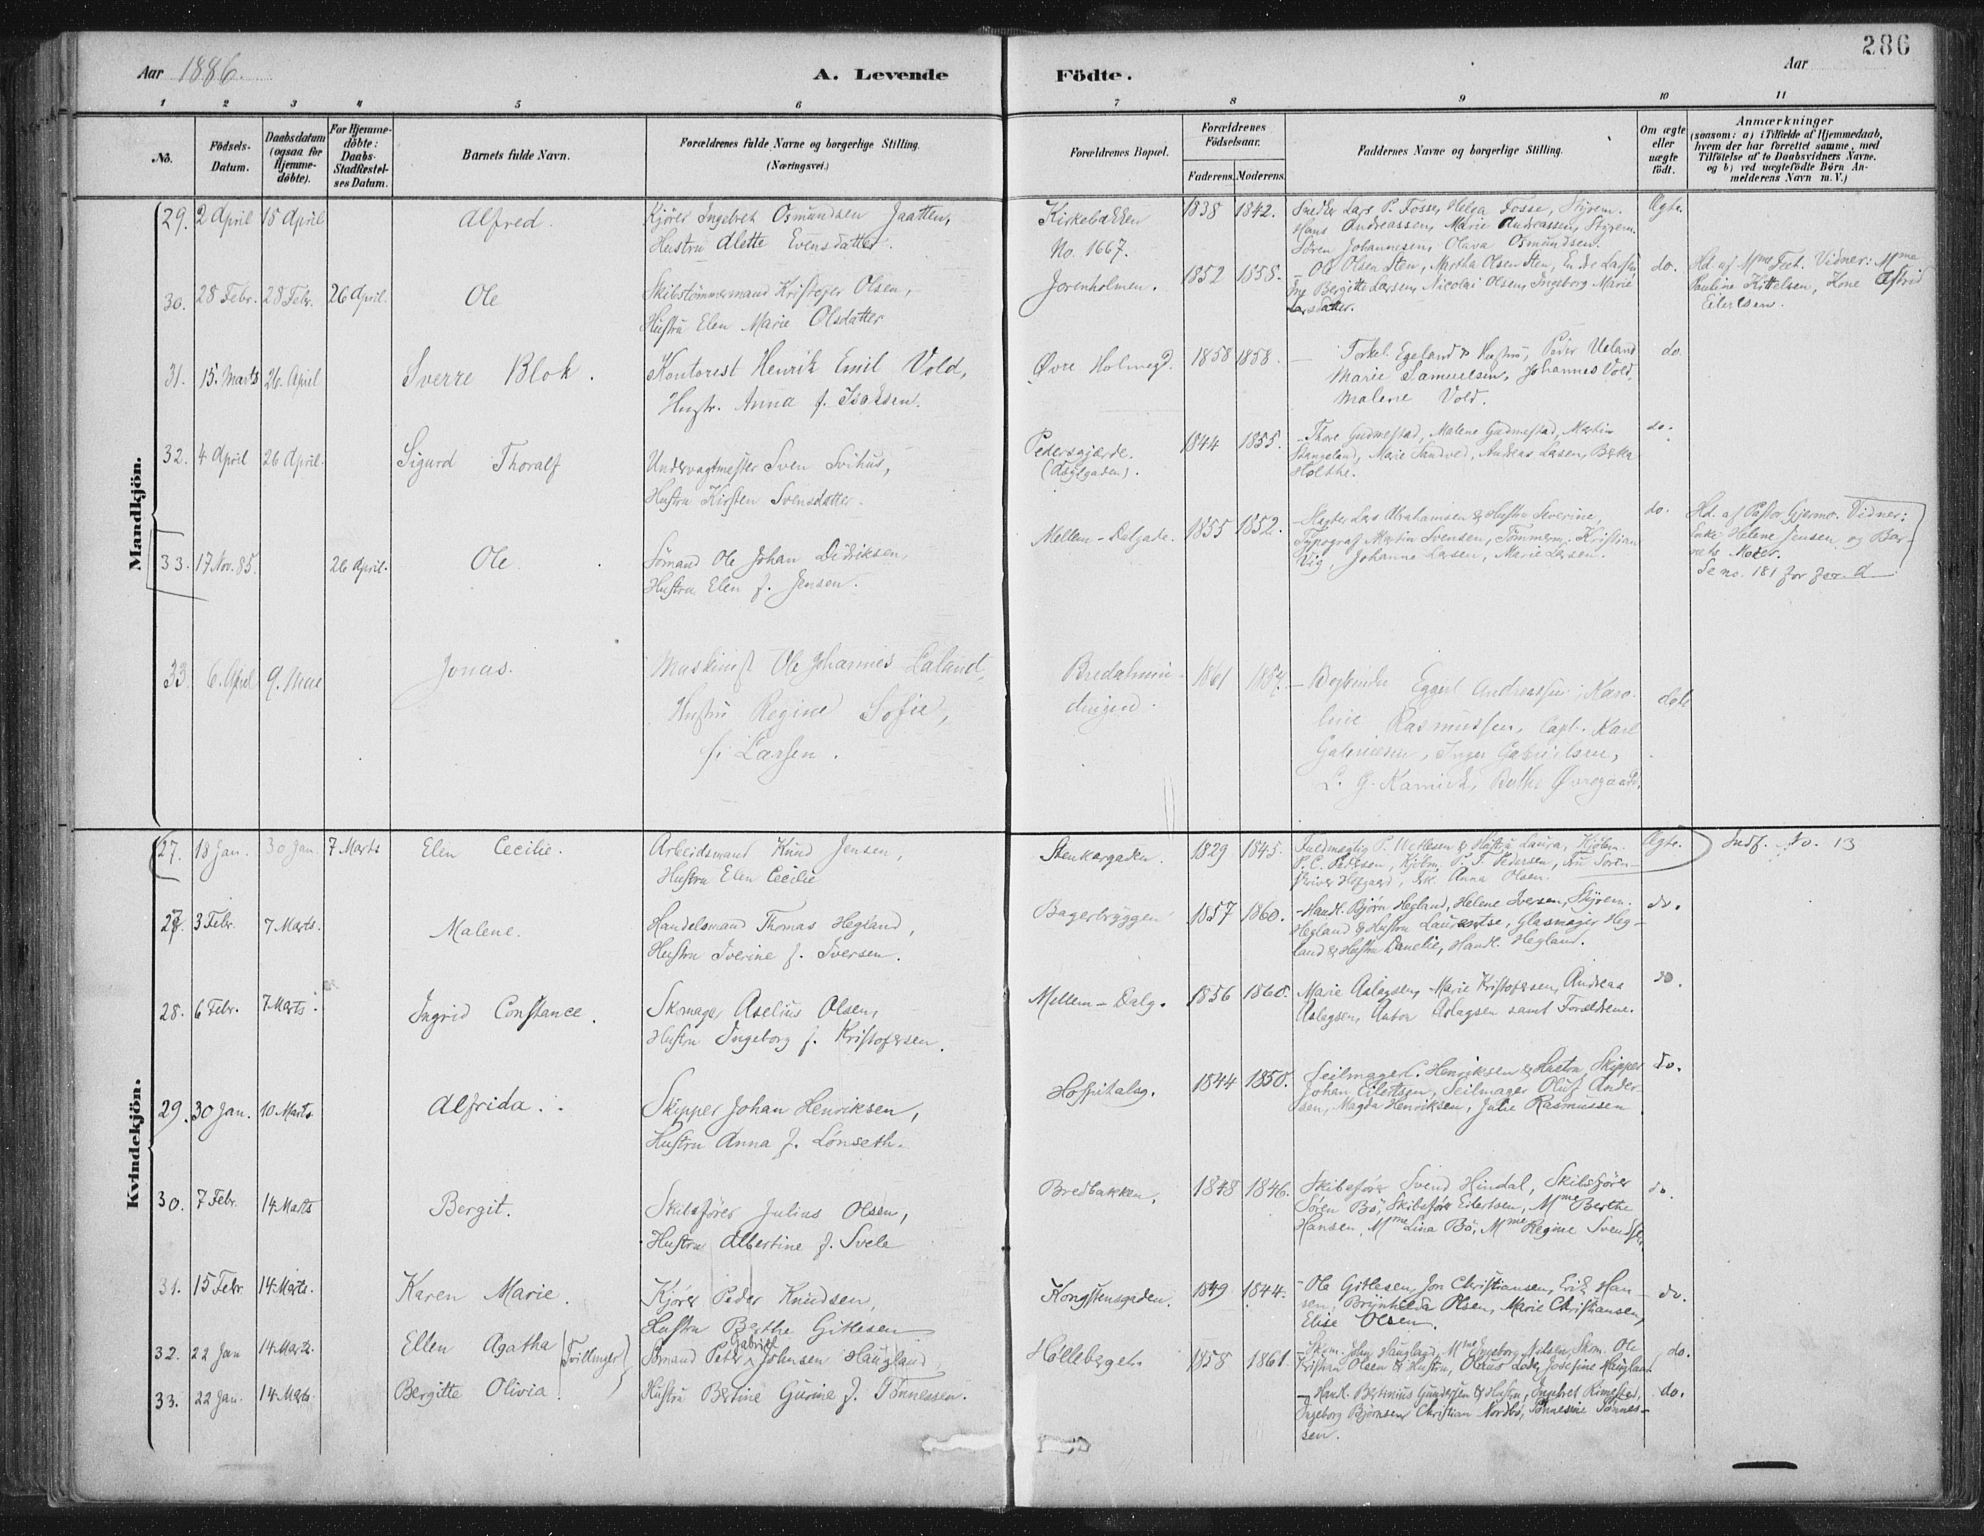 286
Aar 1886. A. Levende Födte. Aar
1 2 3 4 5 6 7 8 9 10 11
No. Födsels-Datum. Daabsdatum (ogsaa for Hjemme-döbte). For Hjemme-döbte: Daabs-Stadfæstel-ses Datum. Barnets fulde Navn. Forældrenes fulde Navne og borgerlige Stilling. (Næringsvei.) Forældrenes Bopæl. Forældrenes Födselsaar. Faderens. Moderens. Faddernes Navne og borgerlige Stilling. Om ægte eller uægte födt. Anmærkninger (saasom: a) i Tilfælde af Hjemmedaab, hvem der har forrettet samme, med Tilföielse af to Daabsvidners Navne, og b) ved uægtefödte Börn An-melderens Navn m. V.)
Mandkjön.
29. 2 April 15 April Alfred. Kjører Ingebret Osmundsen Jaatten, Kirkebakken 1838 1842. Snedker Lars P. Fosse, Helga Fosse, Styrm. Ægte.
Hustru Alette Evensdatter. No. 1667. Hans Andreassen, Marie Andreassen, Styrm.
Søren Johannesen, Olava Osmundsen.
30. 28 Febr. 28 Febr. 26 April. Ole Skibstømmermand Kristofer Olsen, Jorenholmen. 1852 1858. – Ole Olsen Sten, Martha Olsen Sten, Endre Larsen, do. Hd. af Mme Feet. Vidner: Mme
Hustru Elen Marie Olsdatter Ine Bergitte Larsen, Nicolai Olsen, Ingeborg Marie Pauline Kittelsen, Kone Astrid
Larsdatter. Eilertsen.
31. 15. Marts 26. April Sverre Blok. Kontorist Henrik Emil Vold, Øvre Holmegd. 1858 1858. – Torkel Egeland & Hustru, Peder Ueland do.
Hustr. Anna f. Isaksen. Marie Samuelsen, Johannes Vold,
Malene Vold.
32. 4 April 26 April. Sigurd Thoralf Undervagtmester Sven Svihus, Pedersgjærde. 1844 1855. – Thore Gudmestad, Malene Gudmestad, Martin do.
Hustru Kirsten Svensdatter. (Asylgaden). Stangeland, Marie Sandved, Andreas Lasen, Berta
Holthe.
33. 17 Nov. 85. 26 April. Ole. Sømand Ole Johan Didriksen, Mellem-Dalgade. 1855 1852. – Slagter Lars Abrahamsen & Hustru Severine, do. Hd. af Pastor Gjermo. Vidner:
Hustru Elen f. Jensen. Typograf Martin Svensen, Tømmerm. Kristian Enke Helene Jensen og Bar-
Vig, Johanne Larsen, Marie Larsen. nets Moder.
Se no. 181 for
33. 6. April 9. Mai Jonas. Maskinist Ole Johannes Laland, 1861 – Bogbinder Eggert Andreassen, Karo-
Hustru Regine Sofie, line Rasmussen, Capt. Karl
f. Larsen. Gabrielsen, Inger Gabrielsen,
Berthe Øvregaard.
Kvindekjön.
27. 18 Jan. 30 Jan. 7 Marts Elen Cecilie. Arbeidsmand Knud Jensen, Stenkargaden. 1829 1845. & Hustru Laura, Kjøbm. Ægte. Indf. No. 13
Hustru Elen Cecilie P. T. Pedersen, Anna Olsen.
27. 3 Febr. 7 Marts. Malene. Handelsmand Thomas Hegland, Bagerbryggen 1857 1860. – Handl. Bjørn Hegland, Helene Iversen, Styrm. do.
Hustru Iverine f. Iversen. Hegland & Hustru Laurentse, Glasmager Heg-
land & Hustru Danelie, Handl. Hegland.
28. 6 Febr. 7 Marts. Ingrid Constance. Skomager Aselius Olsen, Mellem-Dalg. 1856 1860. Marie Aslagsen, Marie Kristofersen, Andreas do.
Hustru Ingeborg f. Kristofersen. Aslagsen, Anton Aslagsen samt Forældrene.
29. 30 Jan. 10 Marts Alfrida. Skipper Johan Henriksen, Hospitalsg. 1844 1850. Seilmager L. Henriksen & Hustru, Skipper do.
Hustru Anna f. Lønseth. Johan Eilertsen, Seilmager Oluf Ander-
sen, Magda Henriksen, Julie Rasmussen
30. 7 Febr. 14 Marts Bergit. Skibsfører Julius Olsen, Bredbakken. 1848 1846. Skibsfører Svend Hindal, Skibsfører do.
Hustru Albertine f. Svele Søren Bø, Skibsfører Eilertsen, Mme Berthe
Hansen, Mme Lina Bø, Mme Regine Svendsen.
31. 15 Febr 14 Marts. Karen Marie. Kjører Peder Knudsen, Kongstensgaden. 1849 1844. – Ole Gitlesen, Jon Christiansen, Erik Han- do.
Hustru Berthe Gitlesen sen, Brynhilda Olsen, Marie Christiansen,
Elise Olsen.
32. 22 Jan 14 Marts. Ellen Agatha (Tvillinger) Sømand Peter Gabriel Johnsen Haugland, Hølleberget. 1858 1861. – Skom. John Haugland, Mme Ingeborg Skom. Ole do.
Kristian Olsen & Hustru, Olaus Lode, Josefine Haugland
33. 22 Jan. 14 Marts. Bergitte Olivia Hustru Bertine Gurine f. Tønnessen. – Handl. Bertinius Gundersen & Hustru, Ingebret Rimestad, do.
Ingeborg Bjørnsen, Christian Nordbø, Tønnesine Tønnes-
sen.